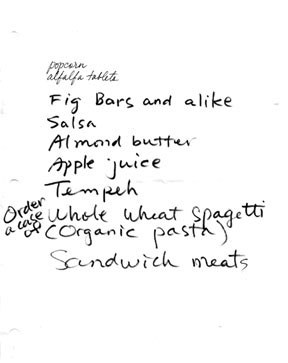 popcorn
alfalfa tablets
Fig Bars and alike
Salsa
Almond butter
Apple juice
Tempeh
Order a case of
Whole wheat spagetti
(Organic pasta)
Sandwich meats